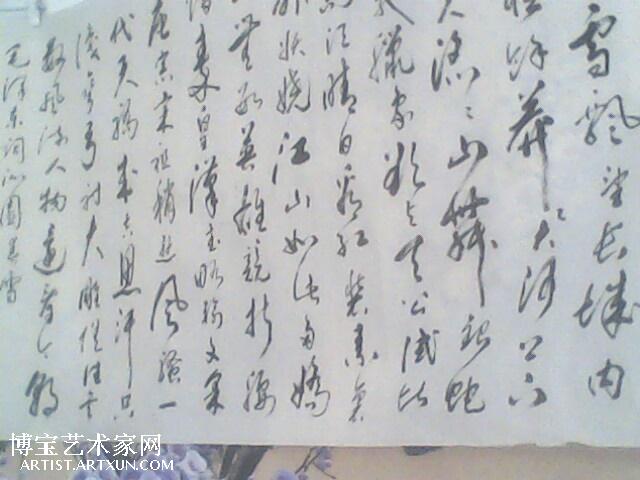 雪飘望长城内
惟馀莽〻大河上下
失滔〻山舞银蛇
蜡象欲与天公试比
须晴日看红装素裹
外妖娆江山如此多娇
无数英雄竞折腰
惜秦皇汉武略输文采
唐宗宋祖稍逊风骚一
代天骄成吉思汗只
识弯弓射大雕俱往矣
数风流人物还看今朝
毛泽东词沁园春雪
博宝艺术家网
ARTIST.ARTXUN.COM